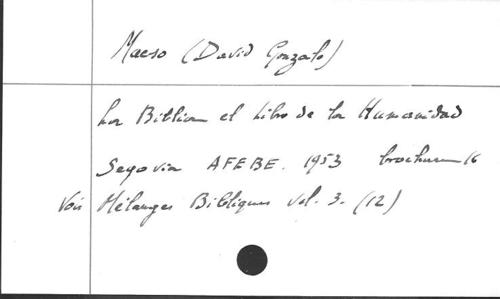 Maeso (David Gonzalo)
La Biblia el libro de la Humanidad
Segovia AFEBE. 1953 brochure 16
Voir Mélanges Bibliques vol. 3. (12)